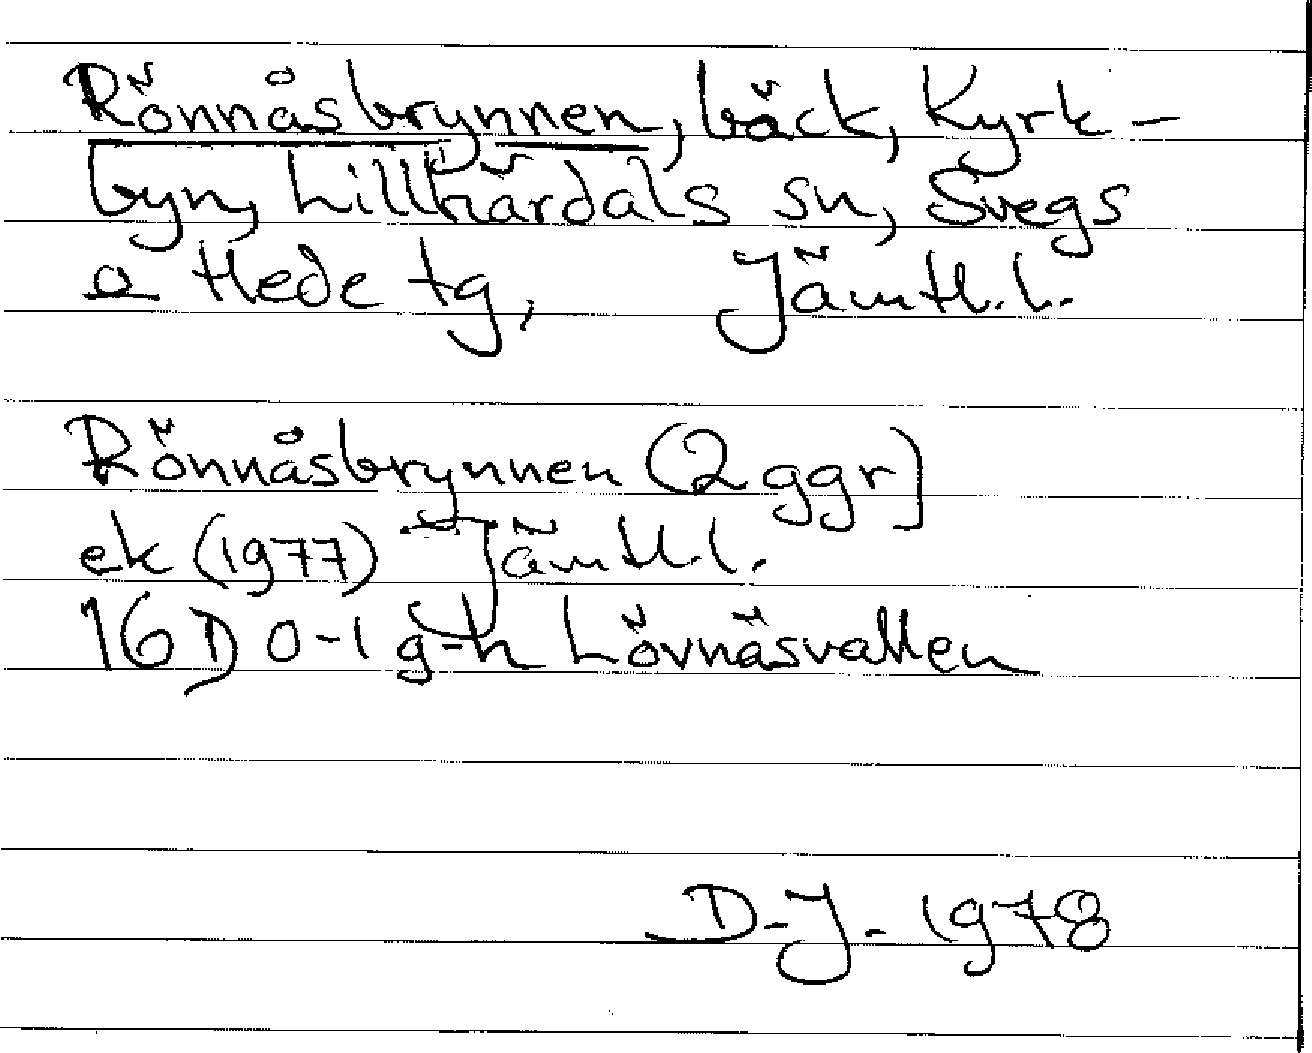 Rönnåsbrynnen, bäck, Kyrk-
byn, Lillhärdals sn, Svegs
o Hede tg, Jämtl. l.
Rönnåsbrynnen (2 ggr)
ek (1977) Jämtl. l.
16 D 0-1 g-h Lövnäsvallen
D-J- 1978